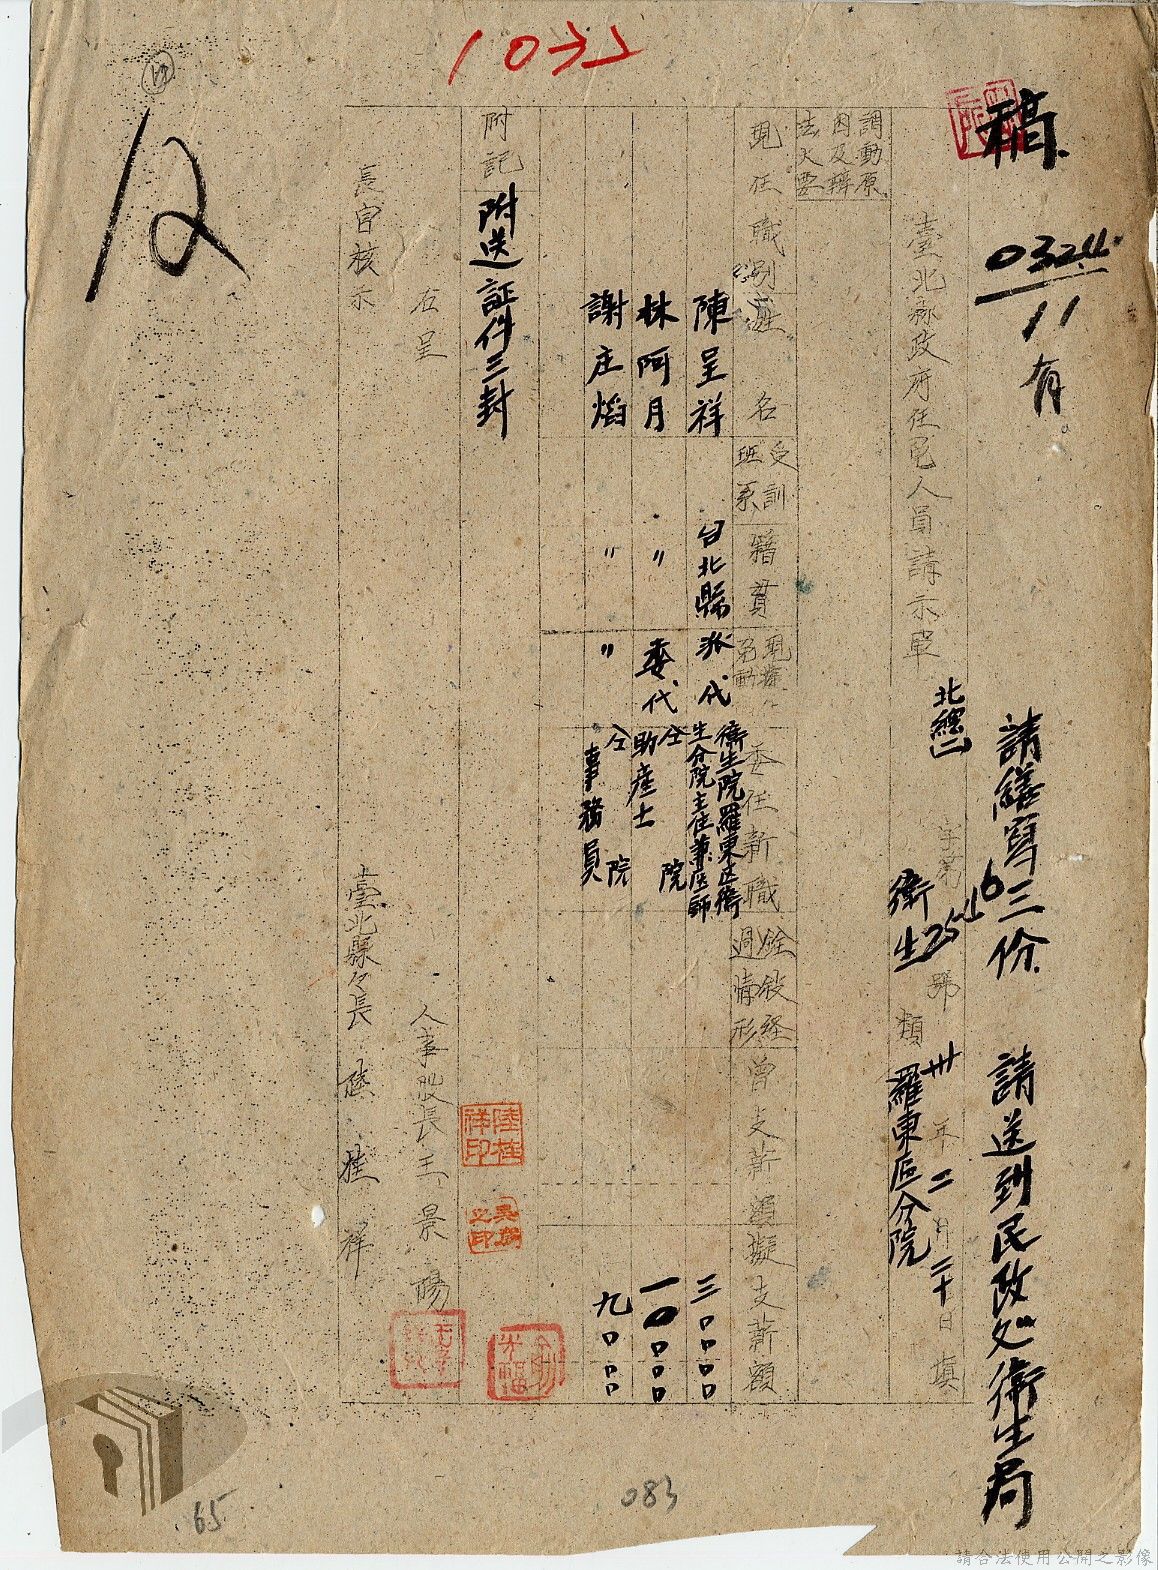 1032
稿
0324
11
有
請繕寫三份 請送到民政処衛生局
臺北縣政府任免人員請示單
北總
字第
2516
號
卅年二月二十日填
衛生類 羅東區分院
調動原因及辦法大要
現任職別
姓名
受訓班系
籍貫
委任新職
銓敘経過情形
曾支薪額
擬支薪額
陳呈祥 台北縣 派代 衛生院羅東区衛生分院主任兼医師 三〇〇〇〇
林阿月 〃 委代 仝院助産士 一〇〇〇〇
謝庄焰 〃 〃 仝院事務員 九〇〇〇
附記
附送証件三封
右呈
人事股長王景陽
長官核示
臺北縣々長陸桂祥
陸桂祥印
12
083
65
請合法使用公開之影像